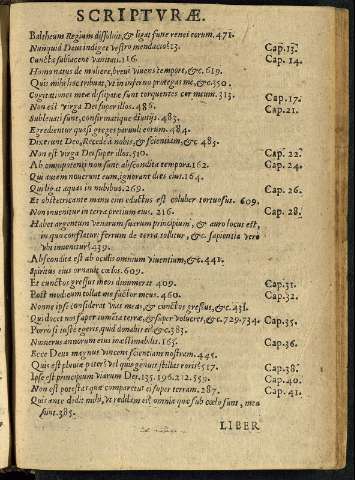 SCRIPTVRÆ.
Baltheum Regium dissoluit, & ligat fune renes eorum. 471.
Nunquid Deus indiget vestro mendacio? 13. Cap. 13.
Cuncta subiacent vanitati. 116. Cap. 14.
Homo natus de muliere, breui viuens tempore, &c. 619.
Quis mihi hoc tribuat, vt in inferno protegas me, &c. 350.
Cogitationes meæ dissipatæ sunt torquentes cor meum. 313. Cap. 17.
Non est virga Dei super illos. 486. Cap. 21.
Subleuati sunt, confirmatique diuitijs. 483.
Egrediuntur quasi greges paruuli eorum. 484.
Dixerunt Deo, Recede a nobis, & scientiam, &c 485.
Non est virga Dei super illos. 510. Cap. 22.
Ab omnipotente non sunt abscondita tempora. 162. Cap. 24.
Qui autem nouerunt eum, ignorant dies eius. 164.
Qui ligat aquas in nubibus. 269. Cap. 26.
Et obstetricante manu eius eductus est coluber tortuosus. 609.
Non inuenitur in terra pretium eius. 216. Cap. 28.
Habet argentum venarum suarum principium, & auro locus est,
in quo conflatur: ferrum de terra tollitur, &c. sapientia verò
vbi inuenitur? 439.
Abscondita est ab oculis omnium viuentium, &c. 441.
Spiritus eius ornauit cœlos. 609.
Et cunctos gressus meos dinumerat 409. Cap. 31.
Post modicum tollat me factor meus. 460. Cap. 32.
Nonne ipse considerat vias meas, & cunctos gressus, &c. 431.
Qui docet nos super iumenta terræ, & super volucres, &c. 729. 734. Cap. 35.
Porro si iuste egeris, quid donabis ei? &c. 383.
Numerus annorum eius inæstimabilis. 165. Cap. 36.
Ecce Deus magnus vincens scientiam nostram. 445.
Quis est pluuiæ pater? vel quis genuit stillas roris? 517. Cap. 38.
Ipse est principium viarum Dei. 135. 196. 212. 559. Cap. 40.
Non est potestas quæ comparetur ei super terram. 287. Cap. 41.
Quis ante dedit mihi, vt reddam ei? omnia quæ sub cœlo sunt, mea
sunt. 385.
LIBER